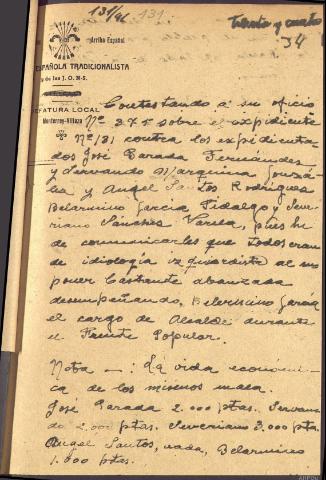 131/41 131
Treinta y cuatro
34
Arriba España!
ESPAÑOLA TRADICIONALISTA
y de las J. O. N-S.
JEFATURA LOCAL
Monterrey-Villaza
Contestando á su oficio
Nº 375 sobre el expidiente
Nº 131 contra los expidienta
dos José Parada Fernández
y Servando Marquina Gonzá
les y Angel Santos Rodrigues
Belarmino Garcia Fidalgo y Seve
riano Sánches Varela, pues he
de comunicarles que todos eran
de idiologia izquierdista al su
poner bastante abanzada
desempeñando, Belermino Garcia
el cargo de Alcalde durante
el Frente Popular.
Nota —: La vida económi
ca de los mismos mala.
José Parada 2.000 ptas. Servan
do 2.000 ptas. Severiano 3.000 ptas.
Angel Santos, nada, Belarmino
1.000 ptas.